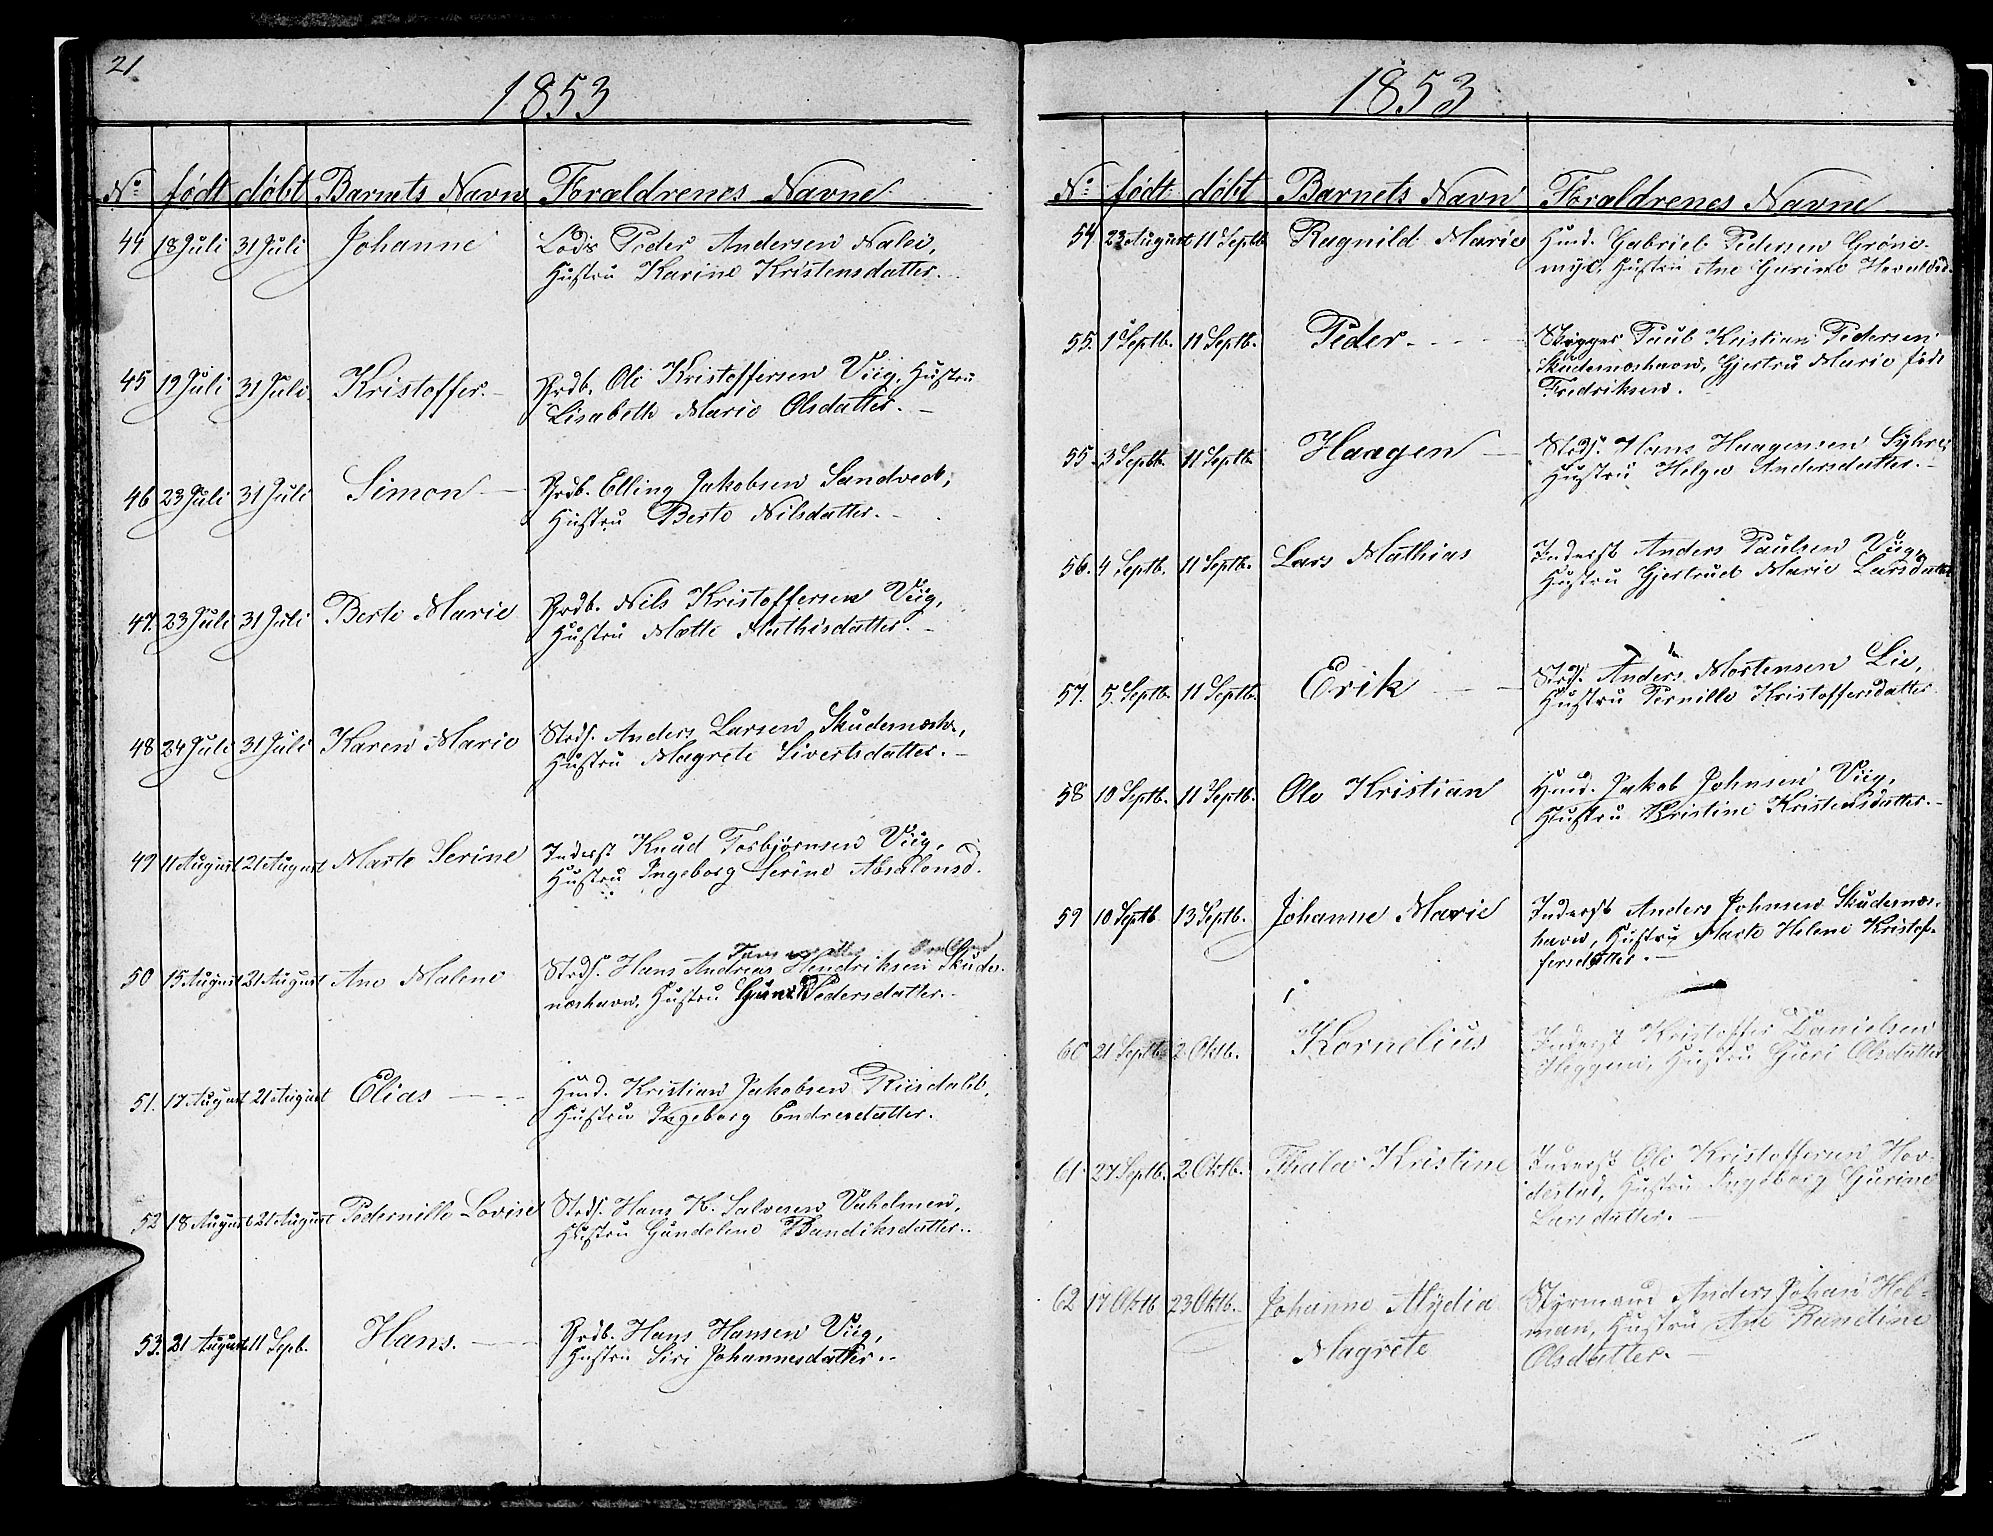 21
1853
No født døbt Barnets Navn Forældrenes Navne
44 18 Juli 31 Juli Johanne Lods Peder Andersen Nalei,
Hustru Karine Kristensdatter.
45 19 Juli 31 Juli Kristoffer. Grdb. Ole Kristoffersen Viig, Hustru
Lisabeth Marie Olsdatter.
46 23 Juli 31 Juli Simon Grdb. Elling Jakobsen Sandved,
Hustru Berte Nilsdatter.
47. 23 Juli 31 Juli Berte Marie Grdb. Nils Kristoffersen Viig,
Hustru Mætte Mathisdatter.
48 24 Juli 31 Juli Karen Marie Strds. Anders Larsen Skudesnæsh.,
Hustru Magrete Sivertsdatter.
49 11 August 21 August Marte Serine Inderst Knud Torbjørnsen Viig,
Hustru Ingeborg Serine Absalonsd.
50 15 August 21 August Ane Malene Strds. Hans Andreas Hendriksen Skudes-
næshavn, Hustru Pedersdatter.
51. 17 August 21 August Elias Hmd. Kristian Jakobsen Riisdahl,
Hustru Ingeborg Endresdatter.
52 18 August 21 August Pedernille Lovise Strds. Hans K. Salvesen Vaholmen,
Hustru Gundeline Bendiksdatter.
53. 21 August 11 Sepb. Hans. Grdb. Hans Hansen Viig,
Hustru Siri Johannesdatter.
1853
No født døbt Barnets Navn Forældrenes Navne
54 23 August 11 Septb. Ragnild Marie Hmd. Gabriel Pedersen Grønne-
myr, Hustru Ane Gurine Havaldsd.
55. 1 Septb. 11 Septb. Peder. Skipper Paul Kristian Pedersen
Skudesnæshavn, Gjertru Marie født
Fredriksen.
55 3 Septb. 11 Septb. Haagen Strds. Hans Haagensen Syhre
Hustru Helge Andersdatter.
56. 4 Septb. 11 Septb. Lars Mathias Inderst Anders Paulsen Viig,
Hustru Gjertrud Marie Larsdatter
57. 5. Septb. 11 Septb. Erik Strds. Anders Mortensen Lie,
Hustru Pernille Kristoffersdatter
58 10 Septb. 11 Septb. Ole Kristian Hmd. Jakob Johnsen Viig,
Hustru Kristine Kristensdatter.
59 10 Septb 13 Septb. Johanne Marie Inderst Anders Johnsen Skudesnæs-
havn, Hustru Marte Helene Kristof-
fersdatter.
60 21 Septb. 2 Oktb. Kornelius Inderst Kristoffer Danielsen
Heggem, Hustru Guri Olsdatter
61. 27 Septb. 2 Oktb. Thale Kristine Inderst Ole Kristoffersen Hov-
destad, Hustru Ingeborg Gurine
Larsdatter.
62 17 Oktb. 23 Oktb. Johanne Alydia Styrmand Anders Johan Hel-
man, Hustru Ane Rundine
Magrete Olsdatter.